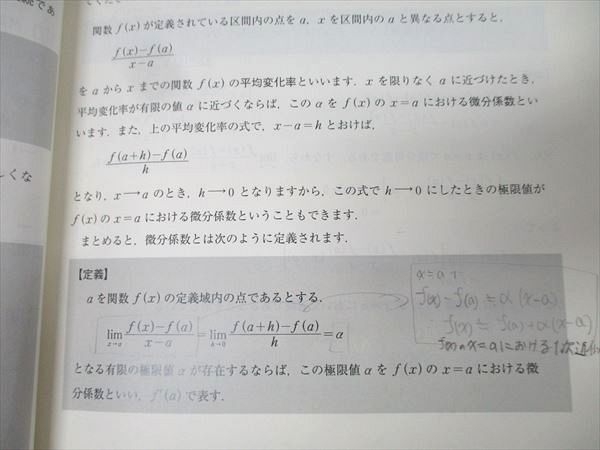 関数 f(x) が定義されている区間内の点を a, x を区間内の a と異なる点とすると,
f(x)−f(a)
x−a
を a から x までの関数 f(x) の平均変化率といいます. x を限りなく a に近づけたとき,
平均変化率が有限の値 α に近づくならば, この α を f(x) の x=a における微分係数とい
います. また, 上の平均変化率の式で, x−a=h とおけば,
f(a+h)−f(a)
h
となり, x→a のとき, h→0 となりますから, この式で h→0 にしたときの極限値が
f(x) の x=a における微分係数ということもできます.
まとめると, 微分係数とは次のように定義されます.
【定義】
a を関数 f(x) の定義域内の点であるとする.
lim x→a f(x)−f(a) / x−a = lim h→0 f(a+h)−f(a) / h = α
となる有限の極限値 α が存在するならば, この極限値 α を f(x) の x=a における微
分係数といい, f'(a) で表す.
f(x)−f(a)≒α(x−a)
f(x)≒f(a)+α(x−a)
x=aにおける1次近似
しくな